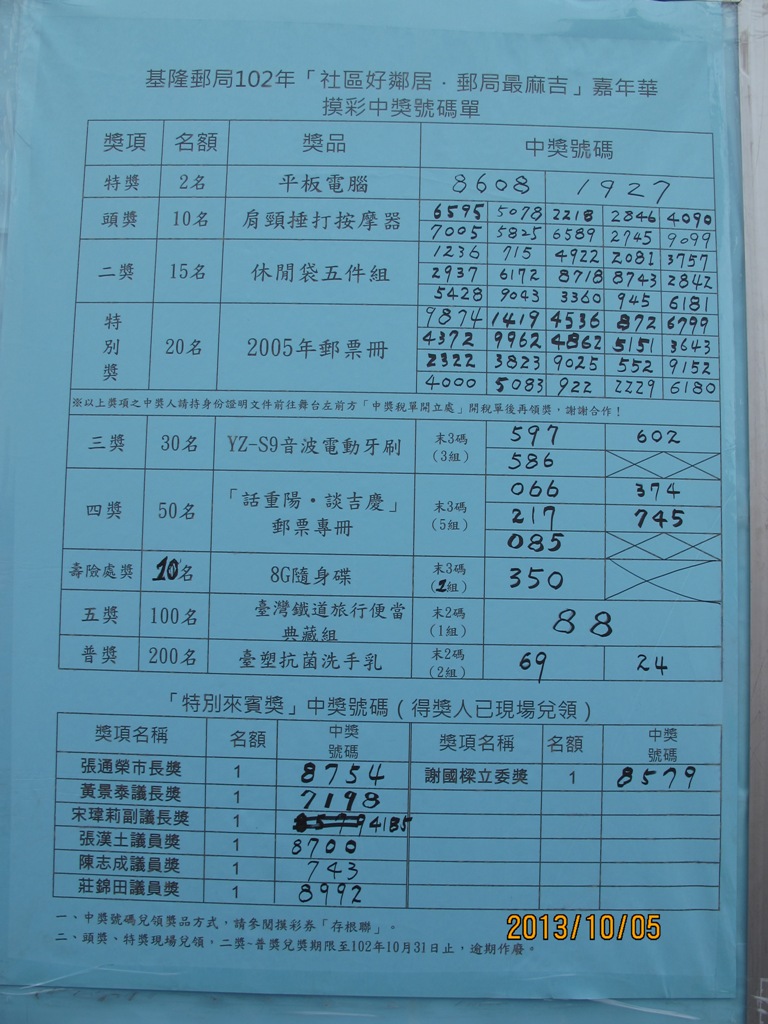 基隆郵局102年「社區好鄰居．郵局最麻吉」嘉年華
摸彩中獎號碼單
獎項 名額 獎品 中獎號碼
特獎 2名 平板電腦 8608 1927
頭獎 10名 肩頸捶打按摩器 6595 5078 2218 2846 4090
7005 5825 6589 2745 9099
二獎 15名 休閒袋五件組 1236 715 4922 2081 3757
2937 6172 8718 8743 2842
5428 9043 3360 945 6181
特別獎 20名 2005年郵票冊 9874 1419 4536 872 6799
4372 9962 4862 5151 3643
2322 3823 9025 552 9152
4000 5083 922 2229 6180
※以上獎項之中獎人請持身份證明文件前往舞台左前方「中獎稅單開立處」開稅單後再領獎，謝謝合作！
三獎 30名 YZ-S9音波電動牙刷 末3碼(3組) 597 602
586
四獎 50名 「話重陽・談吉慶」郵票專冊 末3碼(5組) 066 374
217 745
085
壽險處獎 10名 8G隨身碟 末3碼(1組) 350
五獎 100名 臺灣鐵道旅行便當典藏組 末2碼(1組) 88
普獎 200名 臺塑抗菌洗手乳 末2碼(2組) 69 24
「特別來賓獎」中獎號碼（得獎人已現場兌領）
獎項名稱 名額 中獎號碼 獎項名稱 名額 中獎號碼
張通榮市長獎 1 8754 謝國樑立委獎 1 8579
黃景泰議長獎 1 7198
宋瑋莉副議長獎 1 4135
張漢土議員獎 1 8700
陳志成議員獎 1 743
莊錦田議員獎 1 8992
一、中獎號碼兌領獎品方式，請參閱摸彩券「存根聯」。
二、頭獎、特獎現場兌領，二獎~普獎兌獎期限至102年10月31日止，逾期作廢。
2013/10/05